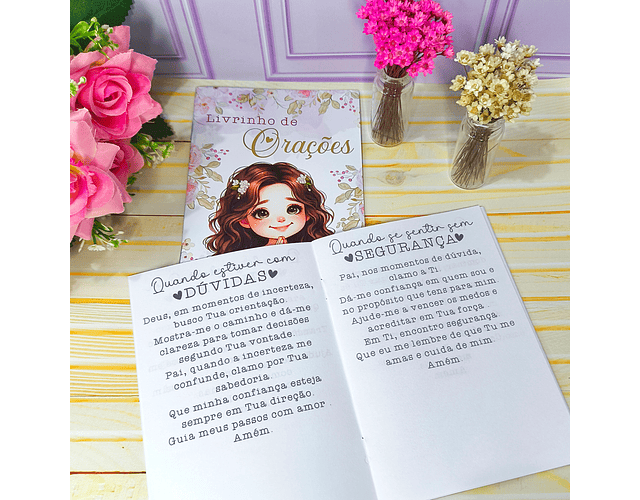 Livrinho de
Orações
Quando estiver com
DÚVIDAS
Deus, em momentos de incerteza,
busco Tua orientação.
Mostra-me o caminho e dá-me
clareza para tomar decisões
segundo Tua vontade.
Pai, quando a incerteza me
confunde, clamo por Tua
sabedoria.
Que minha confiança esteja
sempre em Tua direção.
Guia meus passos com amor.
Amém.
Quando se sentir sem
SEGURANÇA
Pai, nos momentos de dúvida,
clamo a Ti.
Dá-me confiança em quem sou e
no propósito que tens para mim.
Ajude-me a vencer os medos e
acreditar em Tua força.
Em Ti, encontro segurança.
Que eu me lembre de que Tu me
amas e cuida de mim.
Amém.